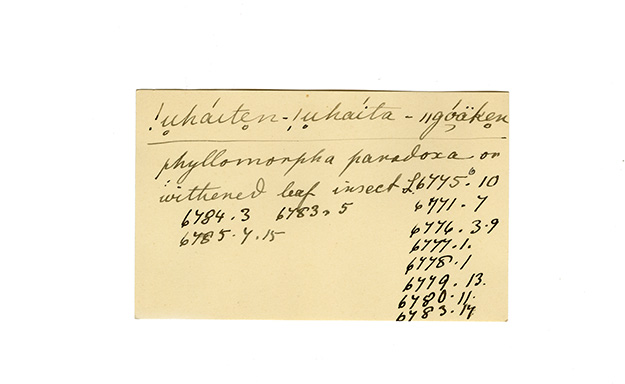 !ụháitẹn - !ụháita - ǁgọ́äkẹn
phyllomorpha paradoxa or
withered leaf insect £6775. 10
6784. 3 6783. 5 6771. 7
6785. 7. 15 6776. 3. 9
6777. 1.
6778. 1
6779. 13.
6780. 11.
6783. 17